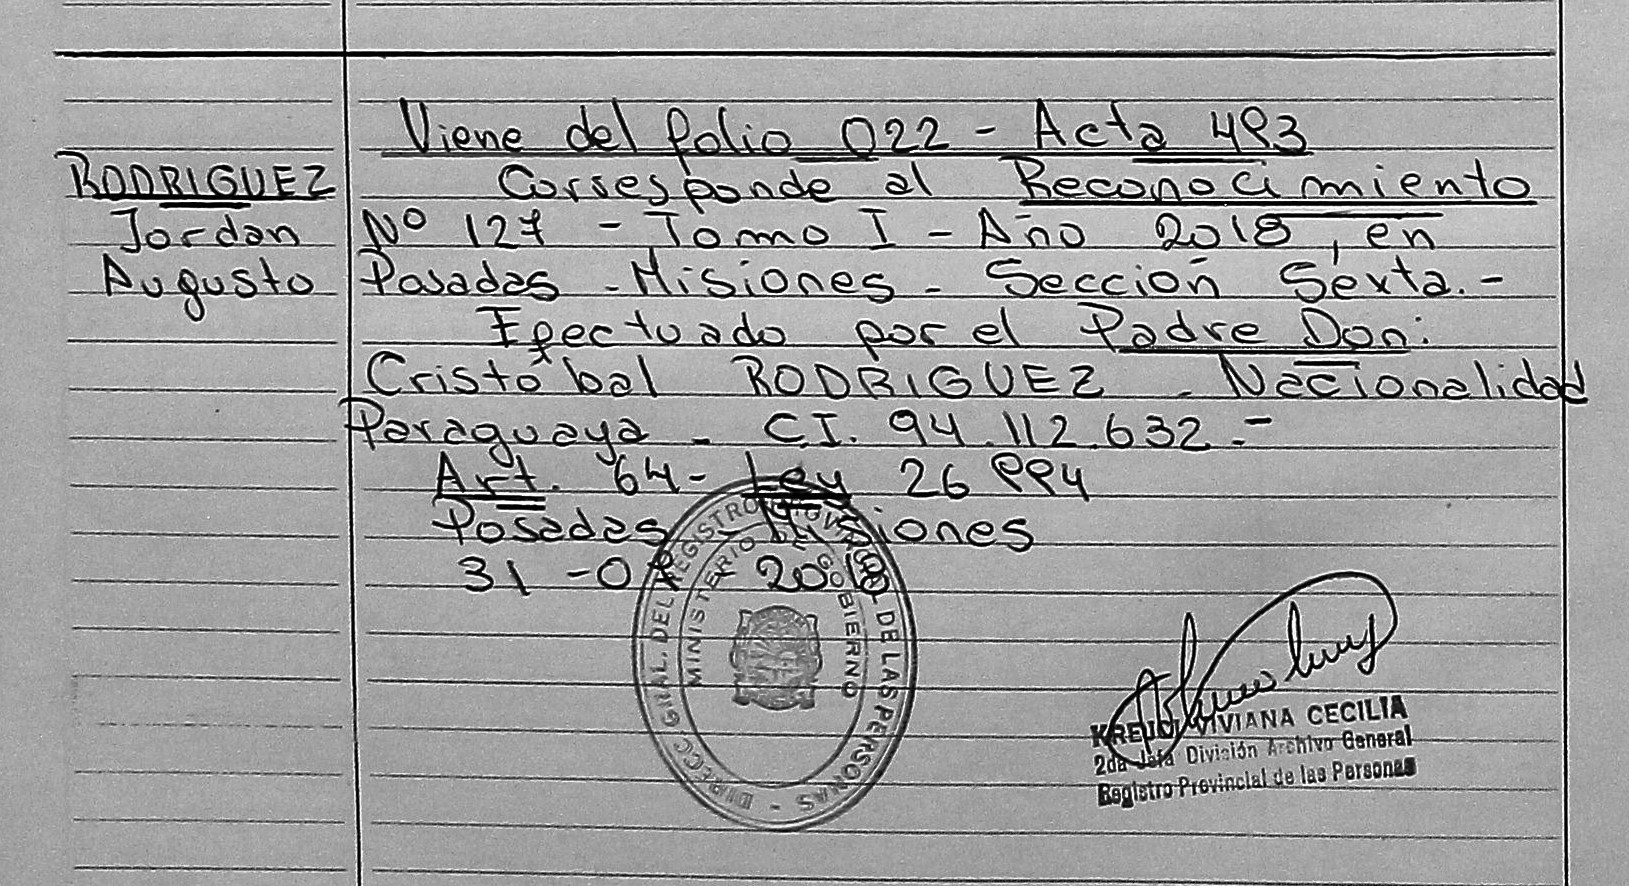 Viene del folio 022 - Acta 493
RODRIGUEZ
Jordan
Augusto
Corresponde al Reconocimiento
Nº 127 - Tomo I - Año 2018, en
Posadas - Misiones - Sección Sexta.-
Efectuado por el Padre Don:
Cristóbal RODRIGUEZ - Nacionalidad
Paraguaya - C.I. 94.112.632.-
Art. 64 - Ley 26994
Posadas - Misiones
31 - 2018
DIRECC. GRAL. DEL REGISTRO PROVINCIAL DE LAS PERSONAS -
MINISTERIO DE GOBIERNO
KREJCI VIVIANA CECILIA
2da Jefa División Archivo General
Registro Provincial de las Personas